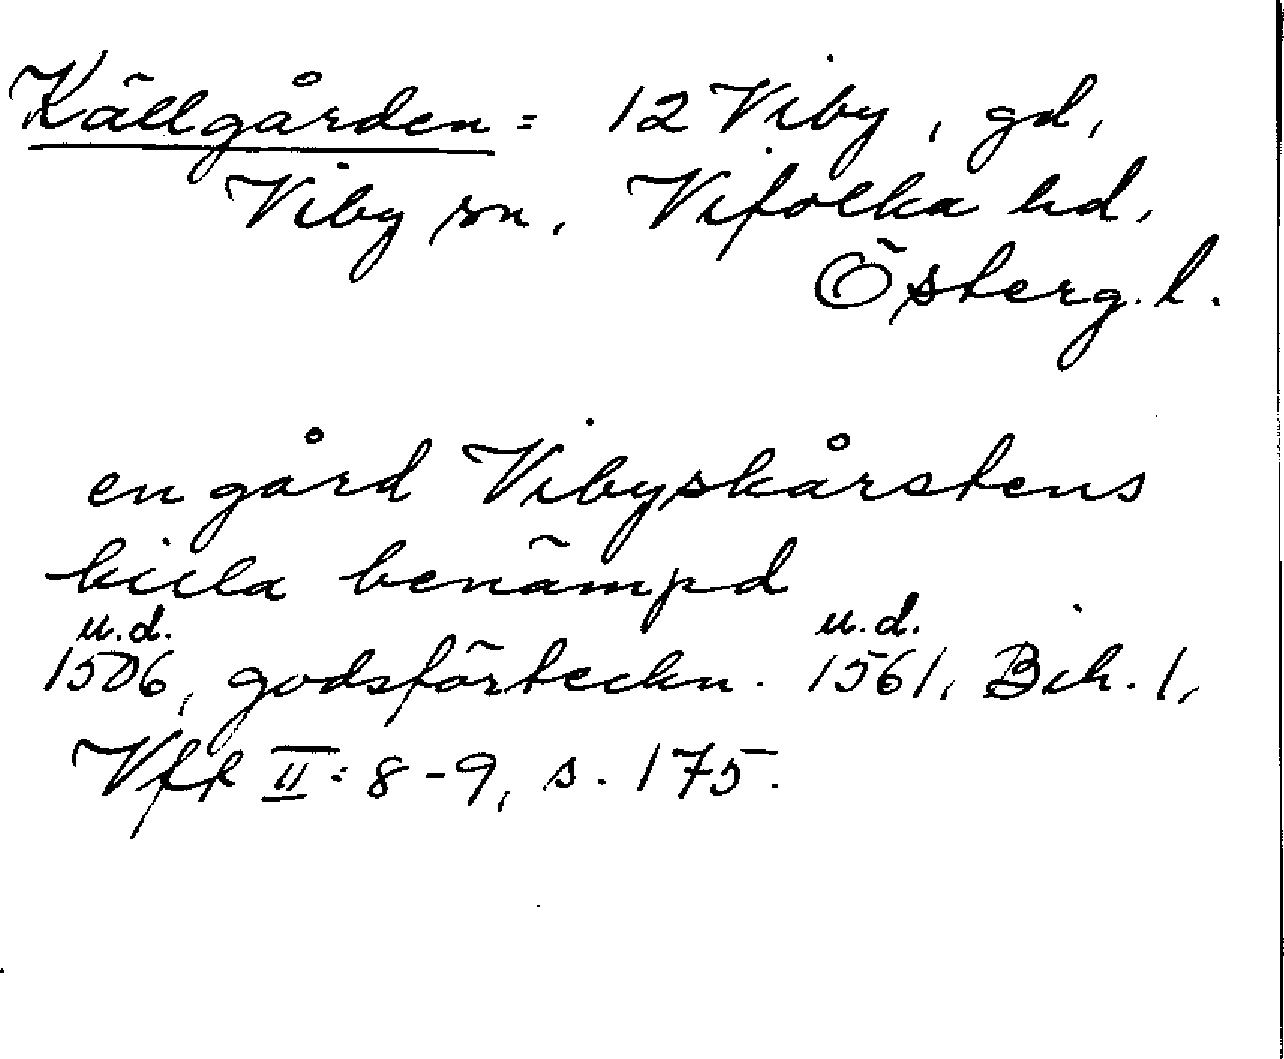 Källgården = 12 Viby, gd,
Viby sn, Vifolka hd,
Österg. l.
en gård Vibyskårstens
killa benämpd
u.d. u.d.
1506, godsförteckn. 1561, Bih. 1,
Vff II: 8-9, s. 175.